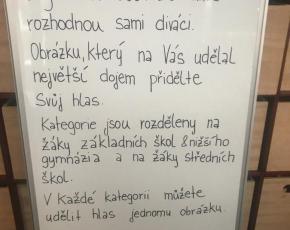 rozhodnou sami diváci.
Obrázku, který na Vás udělal
největší dojem přidělte
Svůj hlas.
Kategorie jsou rozděleny na
žáky základních škol & nižšího
gymnázia a na žáky středních
škol.
V Každé kategorii můžete
udělit hlas jednomu obrázku.